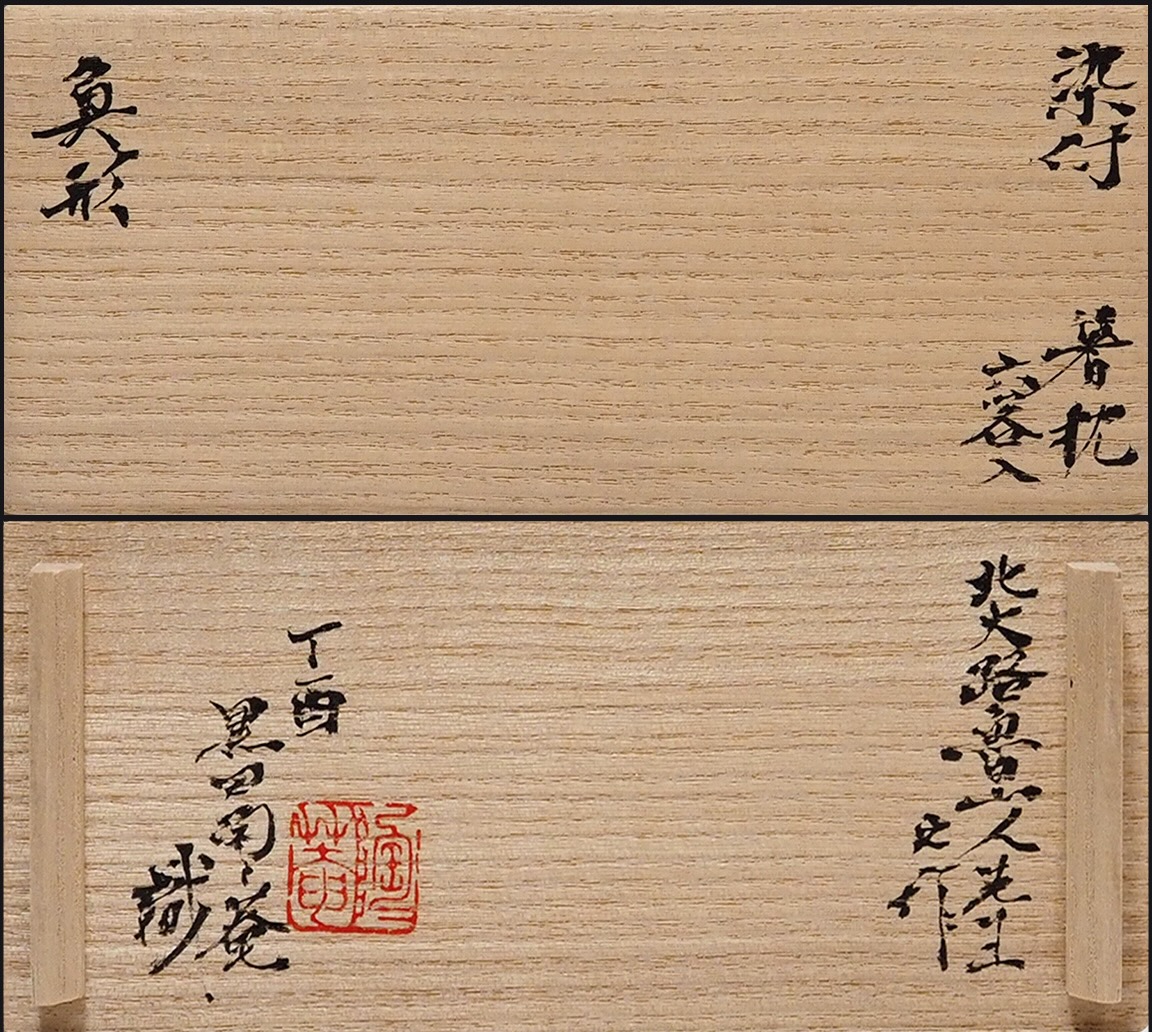 染付　箸枕
六客入
魚形
北大路魯山人先生
之作
丁酉
黒田匋々菴
識